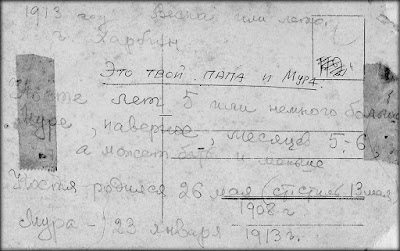 1913 год Весна или лето,
г. Харбин
Это твой папа и Мура
Косте лет 5 или немного больше
Муре, наверное, месяцев 5-6,
а может быть и меньше
Костя родился 26 мая (ст. стиль 13 мая
1908 г.
Мура - 23 января 1913 г.